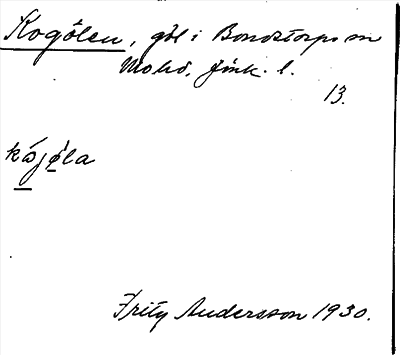 Kogölen, göl i Bondstorps sn
Mohö. Jönk. l.
13.
kåjǿla
Fritz Andersson 1930.